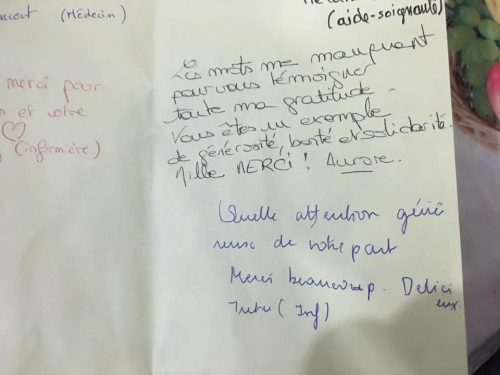 (Médecin)
merci pour
et votre
(infirmière)
(aide-soignante)
Les mots me manquent
pour vous témoigner
toute ma gratitude.
Vous êtes un exemple
de générosité, bonté et solidarité.
Mille MERCI ! Aurore.
Quelle attention géné
reuse de votre part
Merci beaucoup. Delici
eux
(Inf)